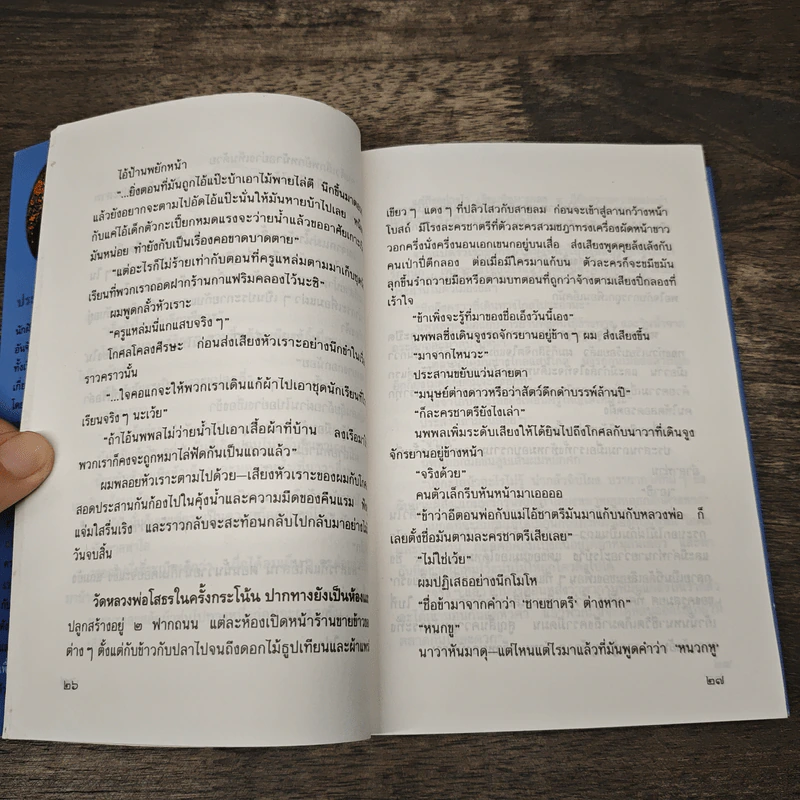 ไอ้ป้านพยักหน้า
“...ยิ่งตอนที่มันถูกไอ้แป๊ะบ้าเอาไม้พายไล่ตี นึกขึ้นมา
แล้วยังอยากจะตามไปอัดไอ้แป๊ะนั่นให้มันหายบ้าไปเลย
กับแค่ไอ้เด็กตัวกะเปี๊ยกหมดแรงจะว่ายน้ำแล้วขออาศัยเกาะ
มันหน่อย ทำยังกับเป็นเรื่องคอขาดบาดตาย”
“แต่อะไรก็ไม่ร้ายเท่ากับตอนที่ครูแหล่มตามมาเก็บชุด
เรียนที่พวกเราถอดฝากร้านกาแฟริมคลองไว้นะซิ”
ผมพูดกลั้วหัวเราะ
“ครูแหล่มนี่แกแสบจริง ๆ”
โกศลโคลงศีรษะ ก่อนส่งเสียงหัวเราะอย่างนึกขำใน
ราวคราวนั้น
“...ใจคอแกจะให้พวกเราเดินแก้ผ้าไปเอาชุดนักเรียนที่
เรียนจริง ๆ นะเว้ย”
“ถ้าไอ้นพพลไม่ว่ายน้ำไปเอาเสื้อผ้าที่บ้าน ลงเรือมา
พวกเราก็คงจะถูกหมาไล่ฟัดกันเป็นแถวแล้ว”
ผมพลอยหัวเราะตามไปด้วย—เสียงหัวเราะของผมกับ
สอดประสานกันก้องไปในคุ้งน้ำและความมืดของคืนแรม
แจ่มใสรื่นเริง และราวกลับจะสะท้อนกลับไปกลับมาอย่าง
วันจบสิ้น
วัดหลวงพ่อโสธรในครั้งกระโน้น ปากทางยังเป็นห้อง
ปลูกสร้างอยู่ ๒ ฟากถนน แต่ละห้องเปิดหน้าร้านขายข้าว
ต่าง ๆ ตั้งแต่กับข้าวกับปลาไปจนถึงดอกไม้ธูปเทียนและผ้าแพร
๒๖
เขียว ๆ แดง ๆ ที่ปลิวไสวกับสายลม ก่อนจะเข้าสู่ลานกว้างหน้า
โบสถ์ มีโรงละครชาตรีที่ตัวละครสวมชฎาทรงเครื่องผัดหน้าขาว
วอกครึ่งนั่งครึ่งนอนเอกเขนกอยู่บนเสื่อ ส่งเสียงพูดคุยลังเลังกับ
คนเป่าปี่ตีกลอง ต่อเมื่อมีใครมาแก้บน ตัวละครก็จะขมีขมัน
ลุกขึ้นรำถวายมือหรือตามบทตอนที่ถูกว่าจ้างตามเสียงปี่กลองที่
เร้าใจ
“ข้าเพิ่งจะรู้ที่มาของชื่อเอ็งวันนี้เอง”
นพพลซึ่งเดินจูงรถจักรยานอยู่ข้าง ๆ ผม ส่งเสียงขึ้น
“มาจากไหนวะ”
ประสานขยับแว่นสายตา
“มนุษย์ต่างดาวหรือว่าสัตว์ดึกดำบรรพ์ล้านปี”
“ก็ละครชาตรียังไงเล่า”
นพพลเพิ่มระดับเสียงให้ได้ยินไปถึงโกศลกับนาวาที่เดินจูง
จักรยานอยู่ข้างหน้า
“จริงด้วย”
คนตัวเล็กรีบหันหน้ามาเออออ
“ข้าว่าอีตอนพ่อกับแม่ไอ้ชาตรีมันมาแก้บนกับหลวงพ่อ ก็
เลยตั้งชื่อมันตามละครชาตรีเสียเลย”
“ไม่ใช่เว้ย”
ผมปฏิเสธอย่างนึกโมโห
“ชื่อข้ามาจากคำว่า ‘ชายชาตรี’ ต่างหาก”
“หนกขู”
นาวาหันมาดุ—แต่ไหนแต่ไรมาแล้วที่มันพูดคำว่า ‘หนวกหู’
๒๗